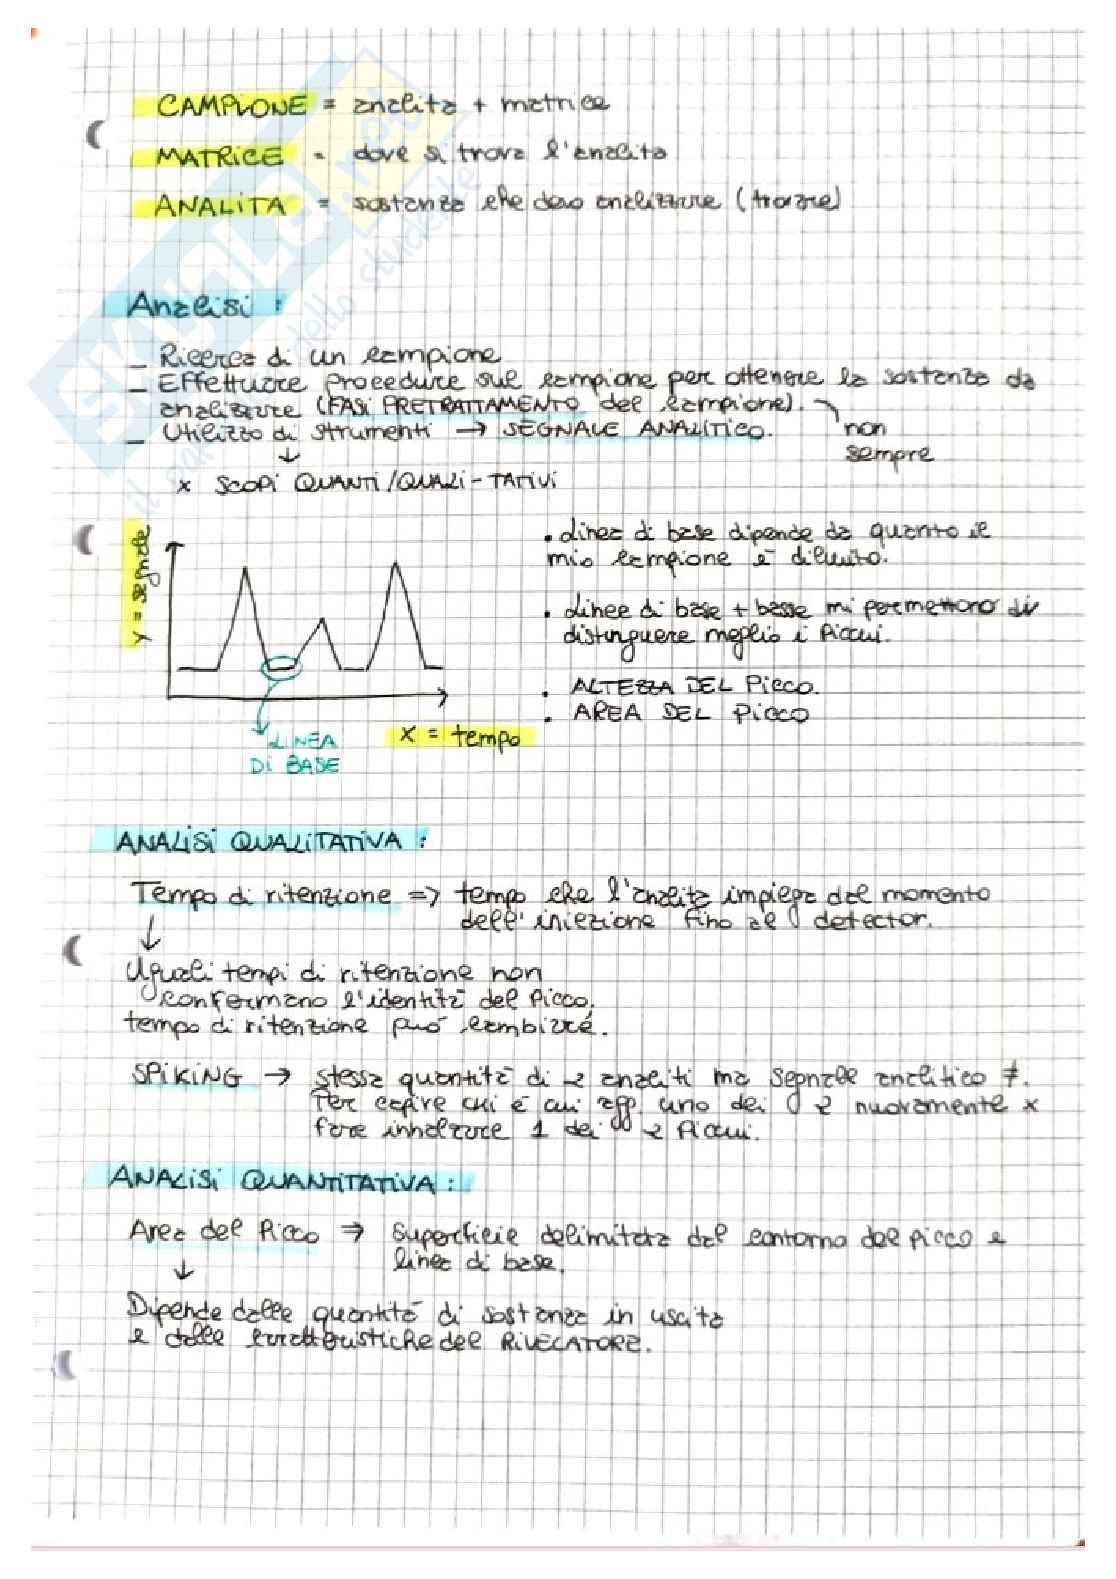 CAMPIONE = analita + matrice
MATRICE = dove si trova l'analita
ANALITA = sostanza che devo analizzare (trovare)
Analisi :
- Ricerca di un campione
- Effettuare procedure sul campione per ottenere la sostanza da
analizzare (FASI PRETRATTAMENTO del campione).
non
sempre
- Utilizzo di strumenti → SEGNALE ANALITICO.
↓
x SCOPI QUANTI/QUALI-TATIVI
y = segnale
x = tempo
LINEA
DI BASE
• Linea di base dipende da quanto il
mio campione è diluito.
• Linee di base + basse mi permettono di
distinguere meglio i picchi.
• ALTEZZA DEL PICCO.
• AREA DEL PICCO
ANALISI QUALITATIVA :
Tempo di ritenzione => tempo che l'analita impiega dal momento
dell'iniezione fino al detector.
↓
Uguali tempi di ritenzione non
confermano l'identità del picco.
tempo di ritenzione può cambiare.
SPIKING → stessa quantità di 2 analiti ma segnale analitico ≠.
Per capire chi è cui agg. uno dei 2 nuovamente x
fare innalzare 1 dei 2 picchi.
ANALISI QUANTITATIVA :
Area del Picco → Superficie delimitata dal contorno del picco e
linea di base.
↓
Dipende dalle quantità di sostanza in uscita
e dalle caratteristiche del RIVELATORE.
SKUOLA.net
il paradiso dello studente